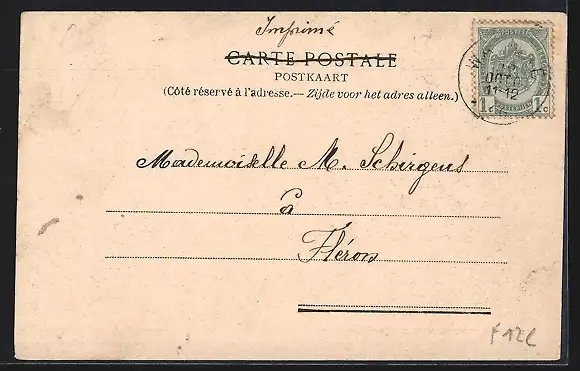 Imprimé
CARTE POSTALE
POSTKAART
(Côté réservé à l'adresse.— Zijde voor het adres alleen.)
POSTES
1 1c
OCTO
11-12
Mademoiselle M. Schirgens
à
Fléron